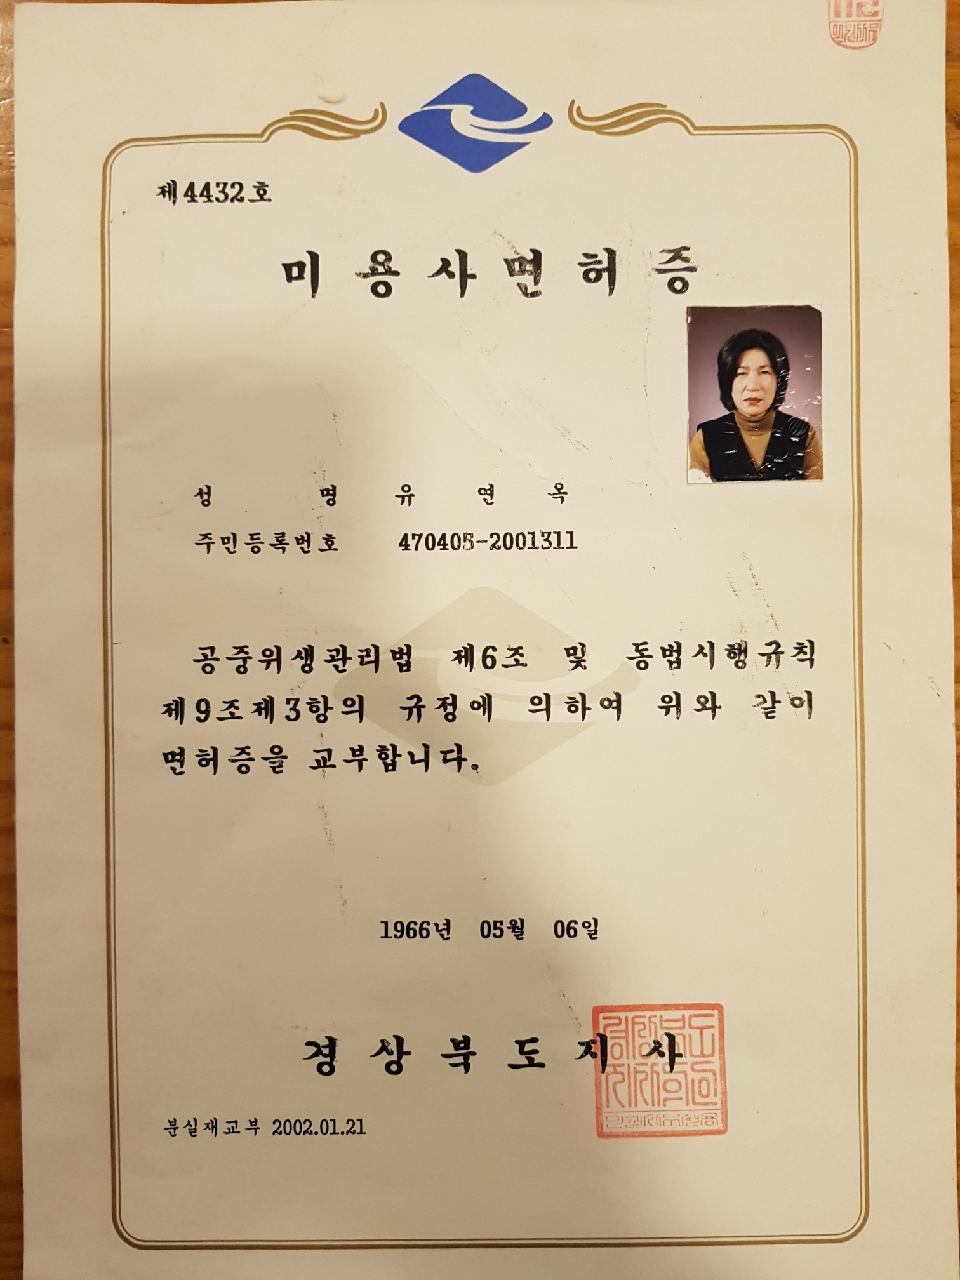 제4432호
미용사면허증
성 명 유연옥
주민등록번호 470405-2001311
공중위생관리법 제6조 및 동법시행규칙
제9조제3항의 규정에 의하여 위와 같이
면허증을 교부합니다.
1966년 05월 06일
경상북도지사
분실재교부 2002.01.21